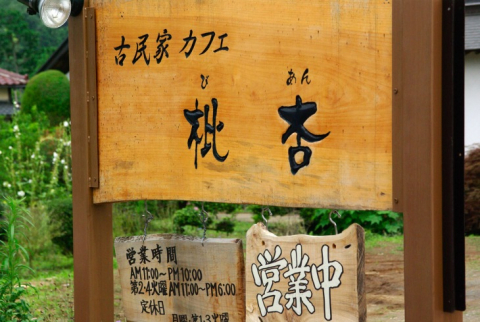 古民家カフェ
び あん
枇杏
営業時間
AM11:00~PM10:00
第2・4火曜AM11:00~PM6:00
定休日
月曜・第1・3火曜
営業中